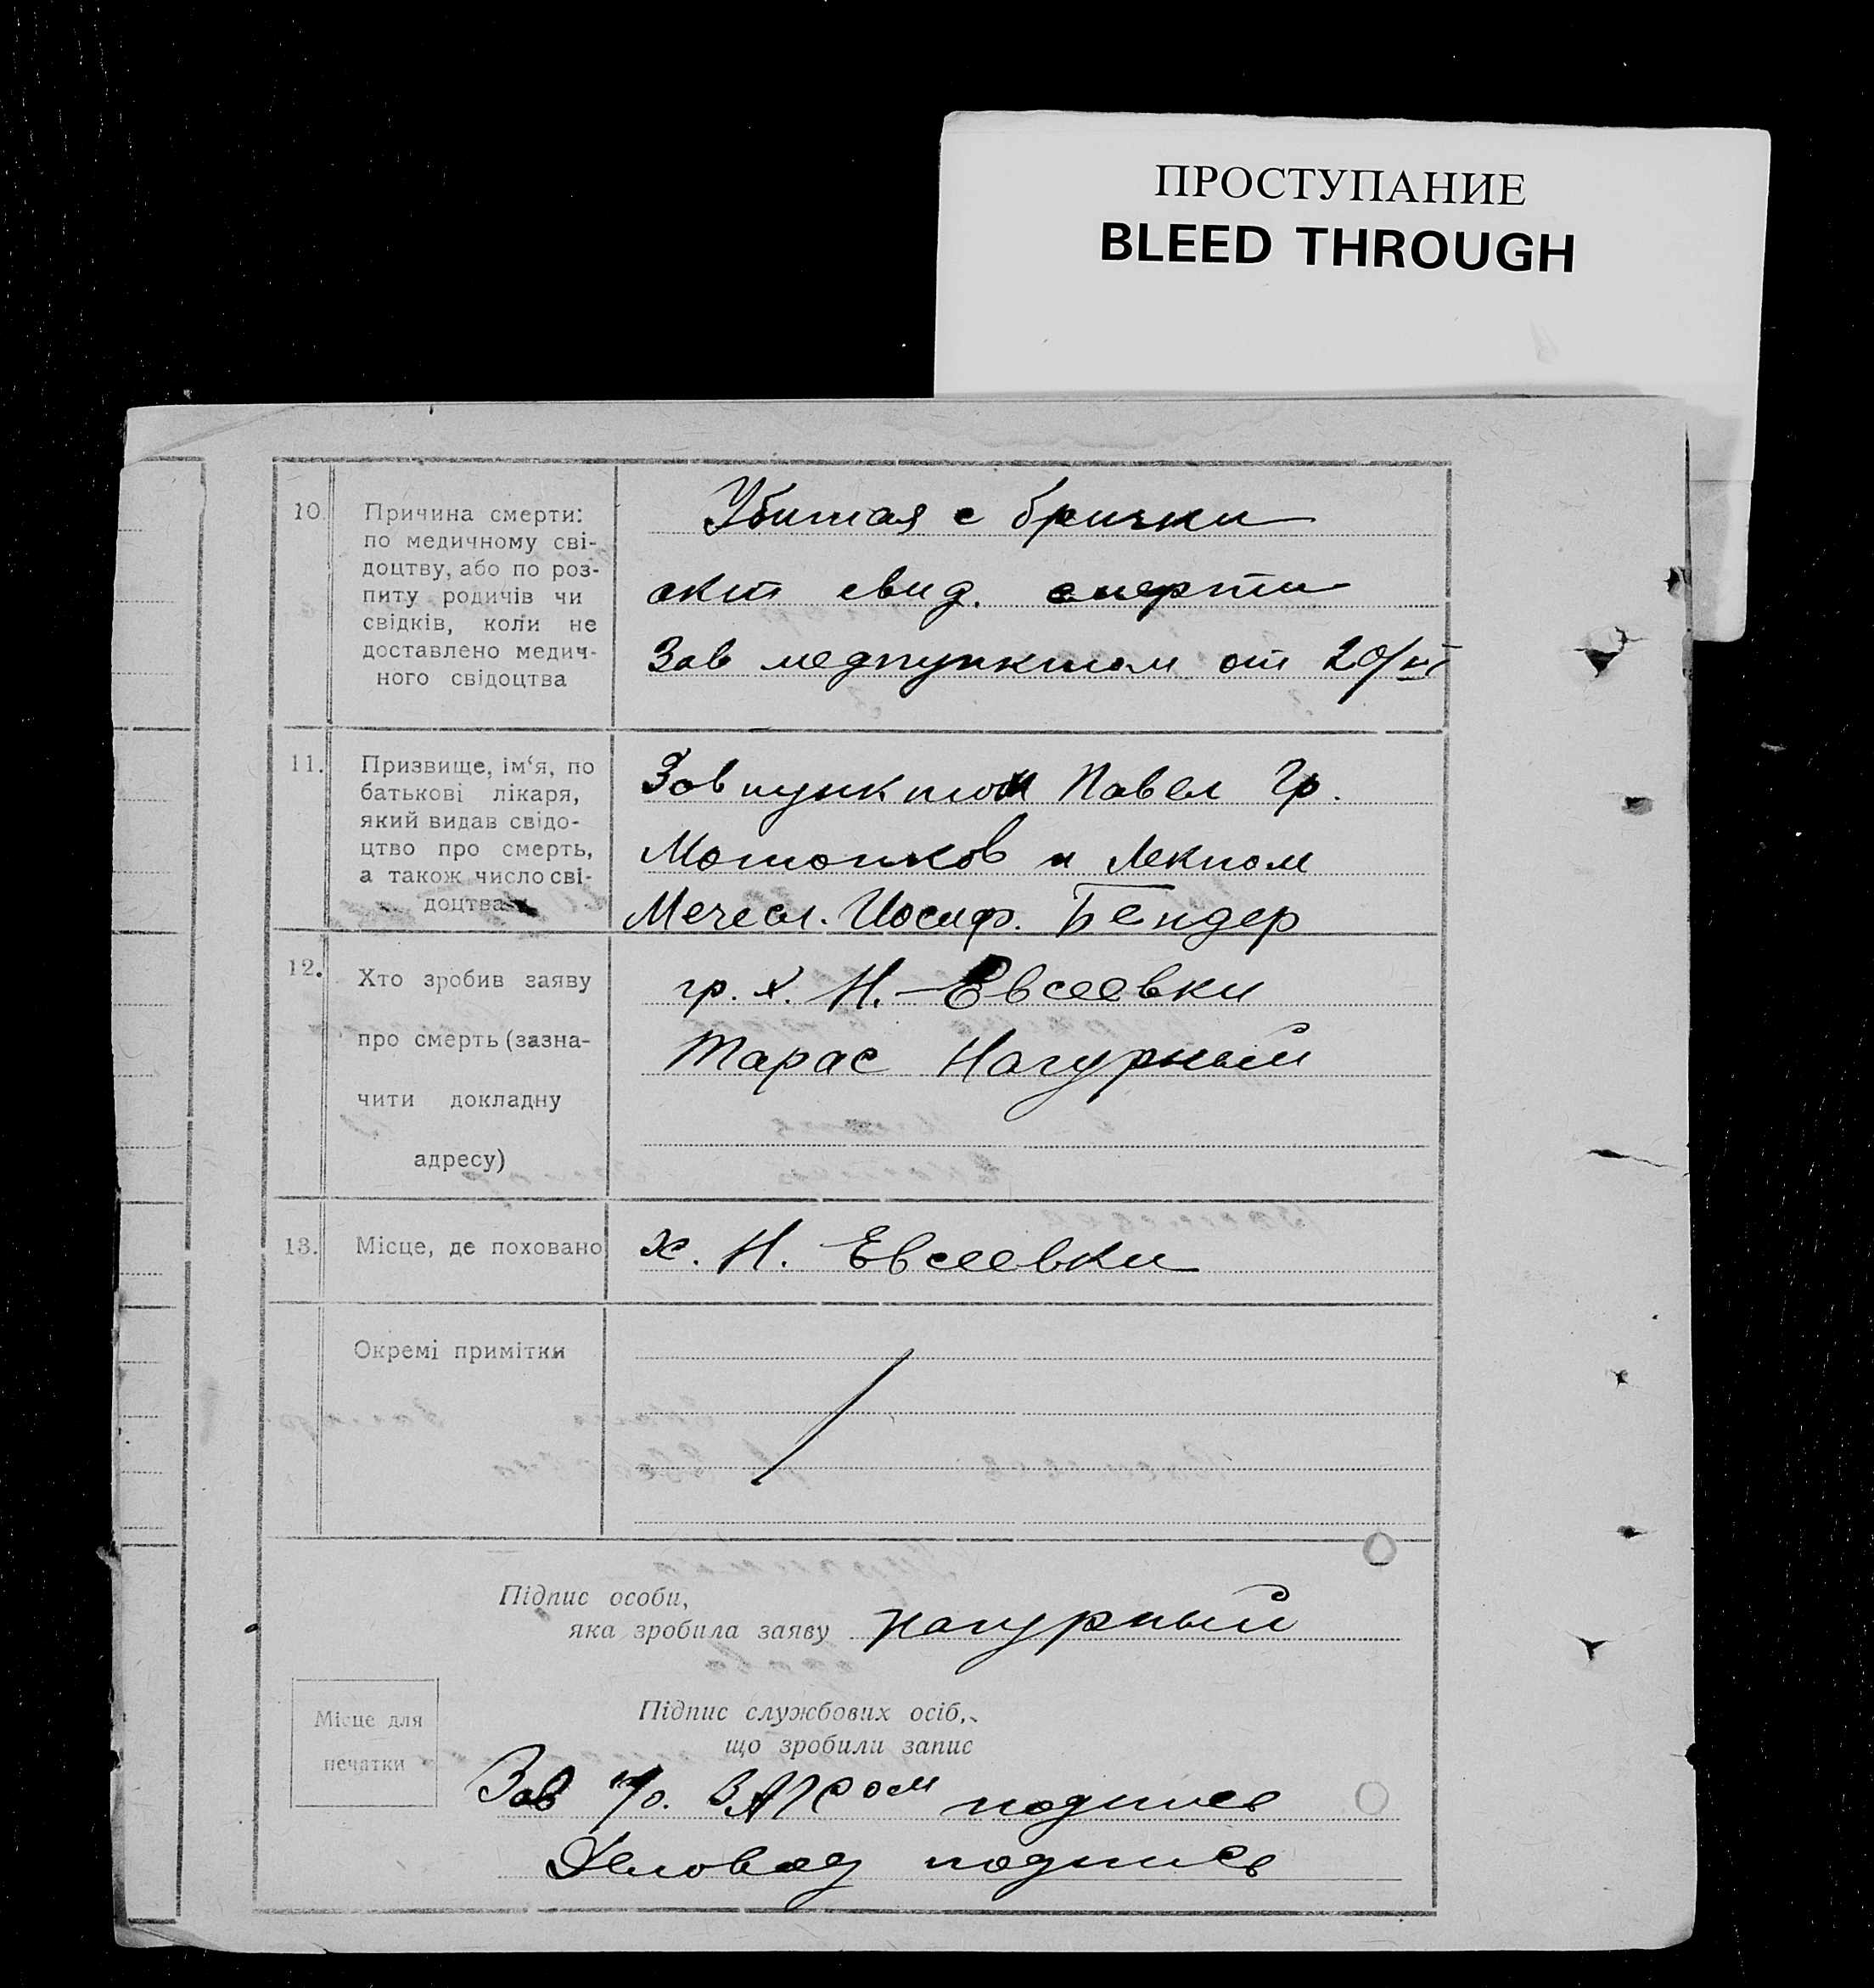 ПРОСТУПАНИЕ
BLEED THROUGH
10. Причина смерти:
по медичному сві-
доцтву, або по роз-
питу родичів чи
свідків, коли не
доставлено медич-
ного свідоцтва
Убитая с брички
акт свид. смерти
Зав медпунктом от 20/
11. Призвище, ім‘я, по
батькові лікаря,
який видав свідо-
цтво про смерть,
а також число сві-
доцтва
Завпунктом Павел Гр.
и Лекпом
Мечесл. Иосиф. Бендер
12. Хто зробив заяву
про смерть (зазна-
чити докладну
адресу)
гр. х. Н.-Евсеевки
Тарас Нагурный
13. Місце, де поховано
х. Н. Евсеевки
Окремі примітки
Підпис особи,
яка зробила заяву Нагурный
Місце для
печатки
Підпис службових осіб,
що зробили запис
Зав подпись
Деловод подпись